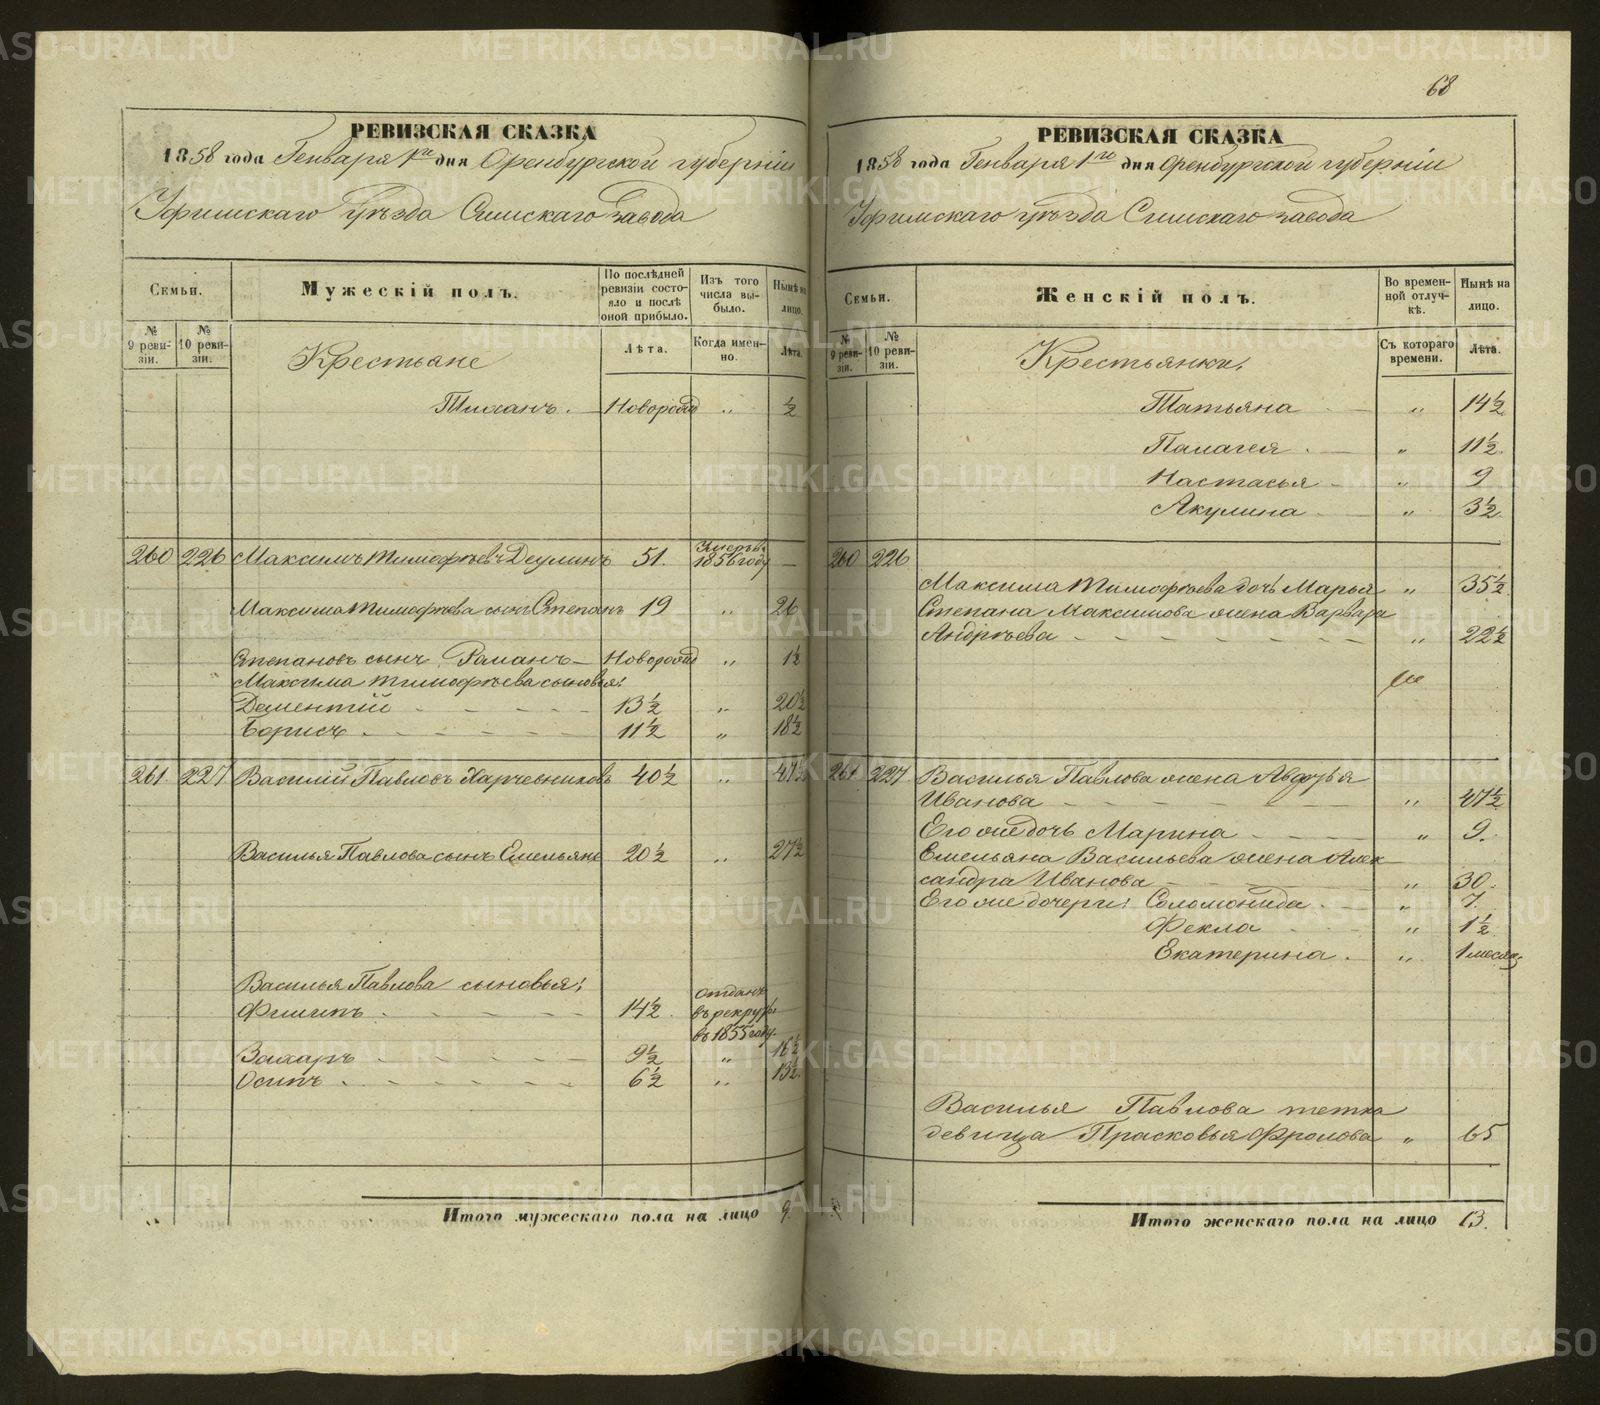 68
РЕВИЗСКАЯ СКАЗКА
1858 года Генваря 1го дня Оренбургской губерніи
Уфимскаго уѣзда Симскаго завода
Семьи.
Мужескій полъ.
По послѣдней ревизіи состояло и послѣ оной прибыло.
Изъ того числа выбыло.
Нынѣ на лицо.
№ 9 ревизіи.
№ 10 ревизіи.
Лѣта.
Когда именно.
Лѣта.
Крестьяне
Тиханъ. Новорожд „ ½
260 226 Максимъ Тимофѣевъ Деулинъ 51. Умеръ въ 1856 году —
Максима Тимофѣева сынъ Степанъ 19 „ 26
Степановъ сынъ Романъ — Новорожд „ 1½
Максима Тимофѣева сыновья:
Дементій 13½ „ 20½
Борисъ 11½ „ 18½
261. 227 Василій Павловъ Харчевниковъ 40½ „ 47½
Василья Павлова сынъ Емельянъ 20½ „ 27½
Василья Павлова сыновья:
Филипъ 14½ отданъ въ рекруты в 1855 году.
Захаръ 9½ „ 16½
Осипъ 6½ „ 13½
Итого мужескаго пола на лицо 9.
РЕВИЗСКАЯ СКАЗКА
1858 года Генваря 1го дня Оренбургской губерніи
Уфимскаго уѣзда Симскаго завода
Семьи.
Женскій полъ.
Во временной отлучкѣ.
Нынѣ на лицо.
№ 9 ревизіи.
№ 10 ревизіи.
Съ котораго времени.
Лѣта.
Крестьянки,
Татьяна „ 14½
Палагея „ 11½
Настасья „ 9
Акулина „ 3½
260 226
Максима Тимофѣева дочь Марья „ 35½
Степана Максимова жена Варвара
Андрѣева „ 22½
261 227 Василья Павлова жена Авдотья
Иванова „ 47½
Его же дочь Марина „ 9.
Емельяна Васильева жена Алек
сандра Иванова „ 30.
Его же дочери: Соломонида „ 7.
Фекла „ 1½
Екатерина „ 1 месяц
Василья Павлова тетка
девица Прасковья Фролова „ 65
Итого женскаго пола на лицо 13.
METRIKI.GASO-URAL.RU